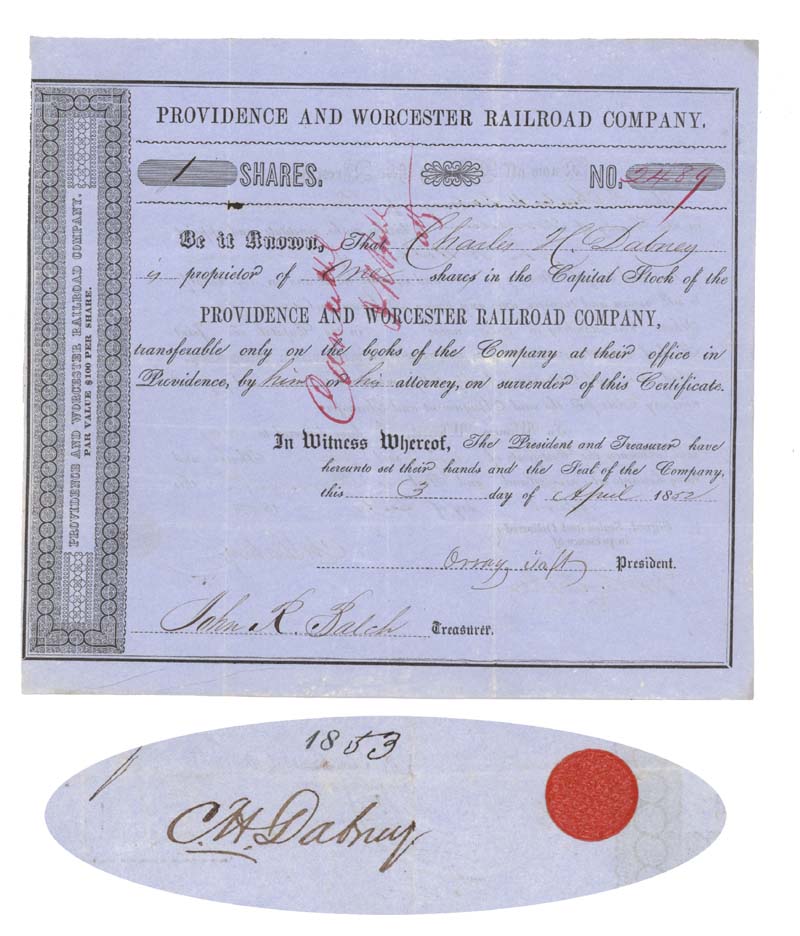 PROVIDENCE AND WORCESTER RAILROAD COMPANY.
PAR VALUE $100 PER SHARE.
PROVIDENCE AND WORCESTER RAILROAD COMPANY.
1 SHARES. NO. 2489
Be it Known, That Charles H. Dabney
is proprietor of One shares in the Capital Stock of the
PROVIDENCE AND WORCESTER RAILROAD COMPANY,
transferable only on the books of the Company at their office in
Providence, by him or his attorney, on surrender of this Certificate.
In Witness Whereof, The President and Treasurer have
hereunto set their hands and the Seal of the Company,
this 3 day of April 1852
Orray Taft President.
John R. Balch Treasurer.
1853
C. H. Dabney